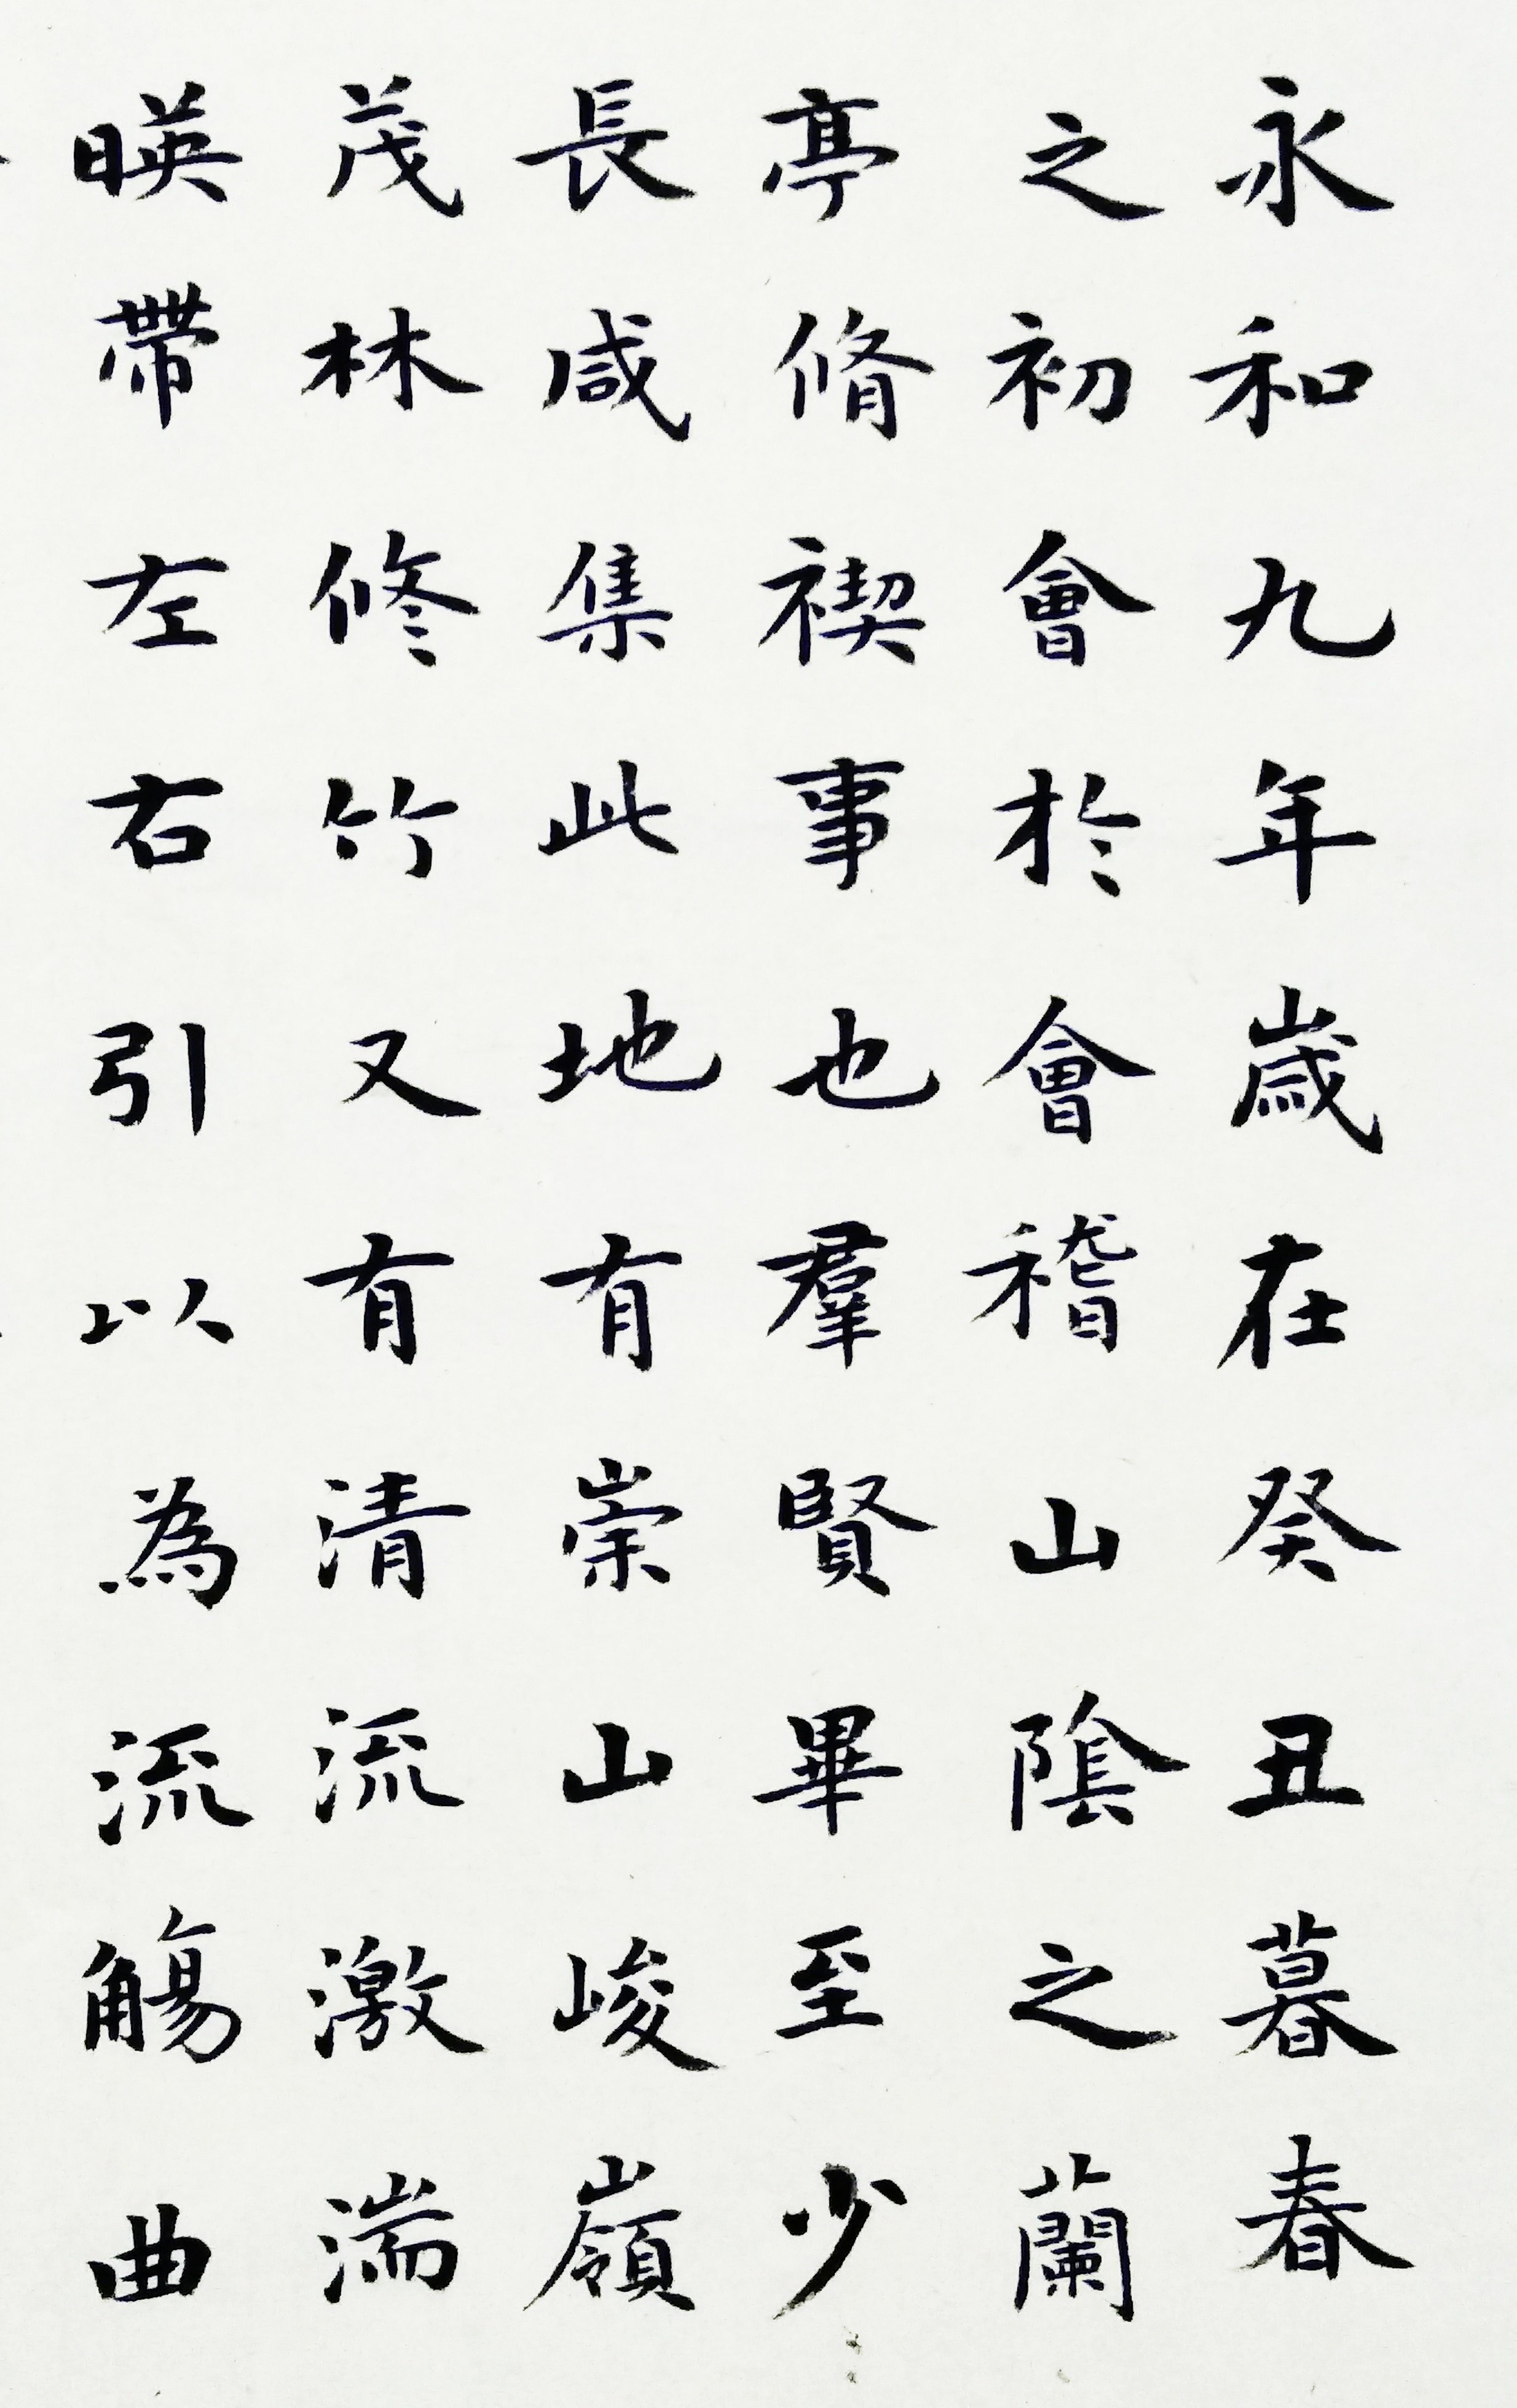 永和九年歲在癸丑暮春
之初會於會稽山陰之蘭
亭脩禊事也羣賢畢至少
長咸集此地有崇山峻嶺
茂林修竹又有清流激湍
暎帶左右引以為流觴曲